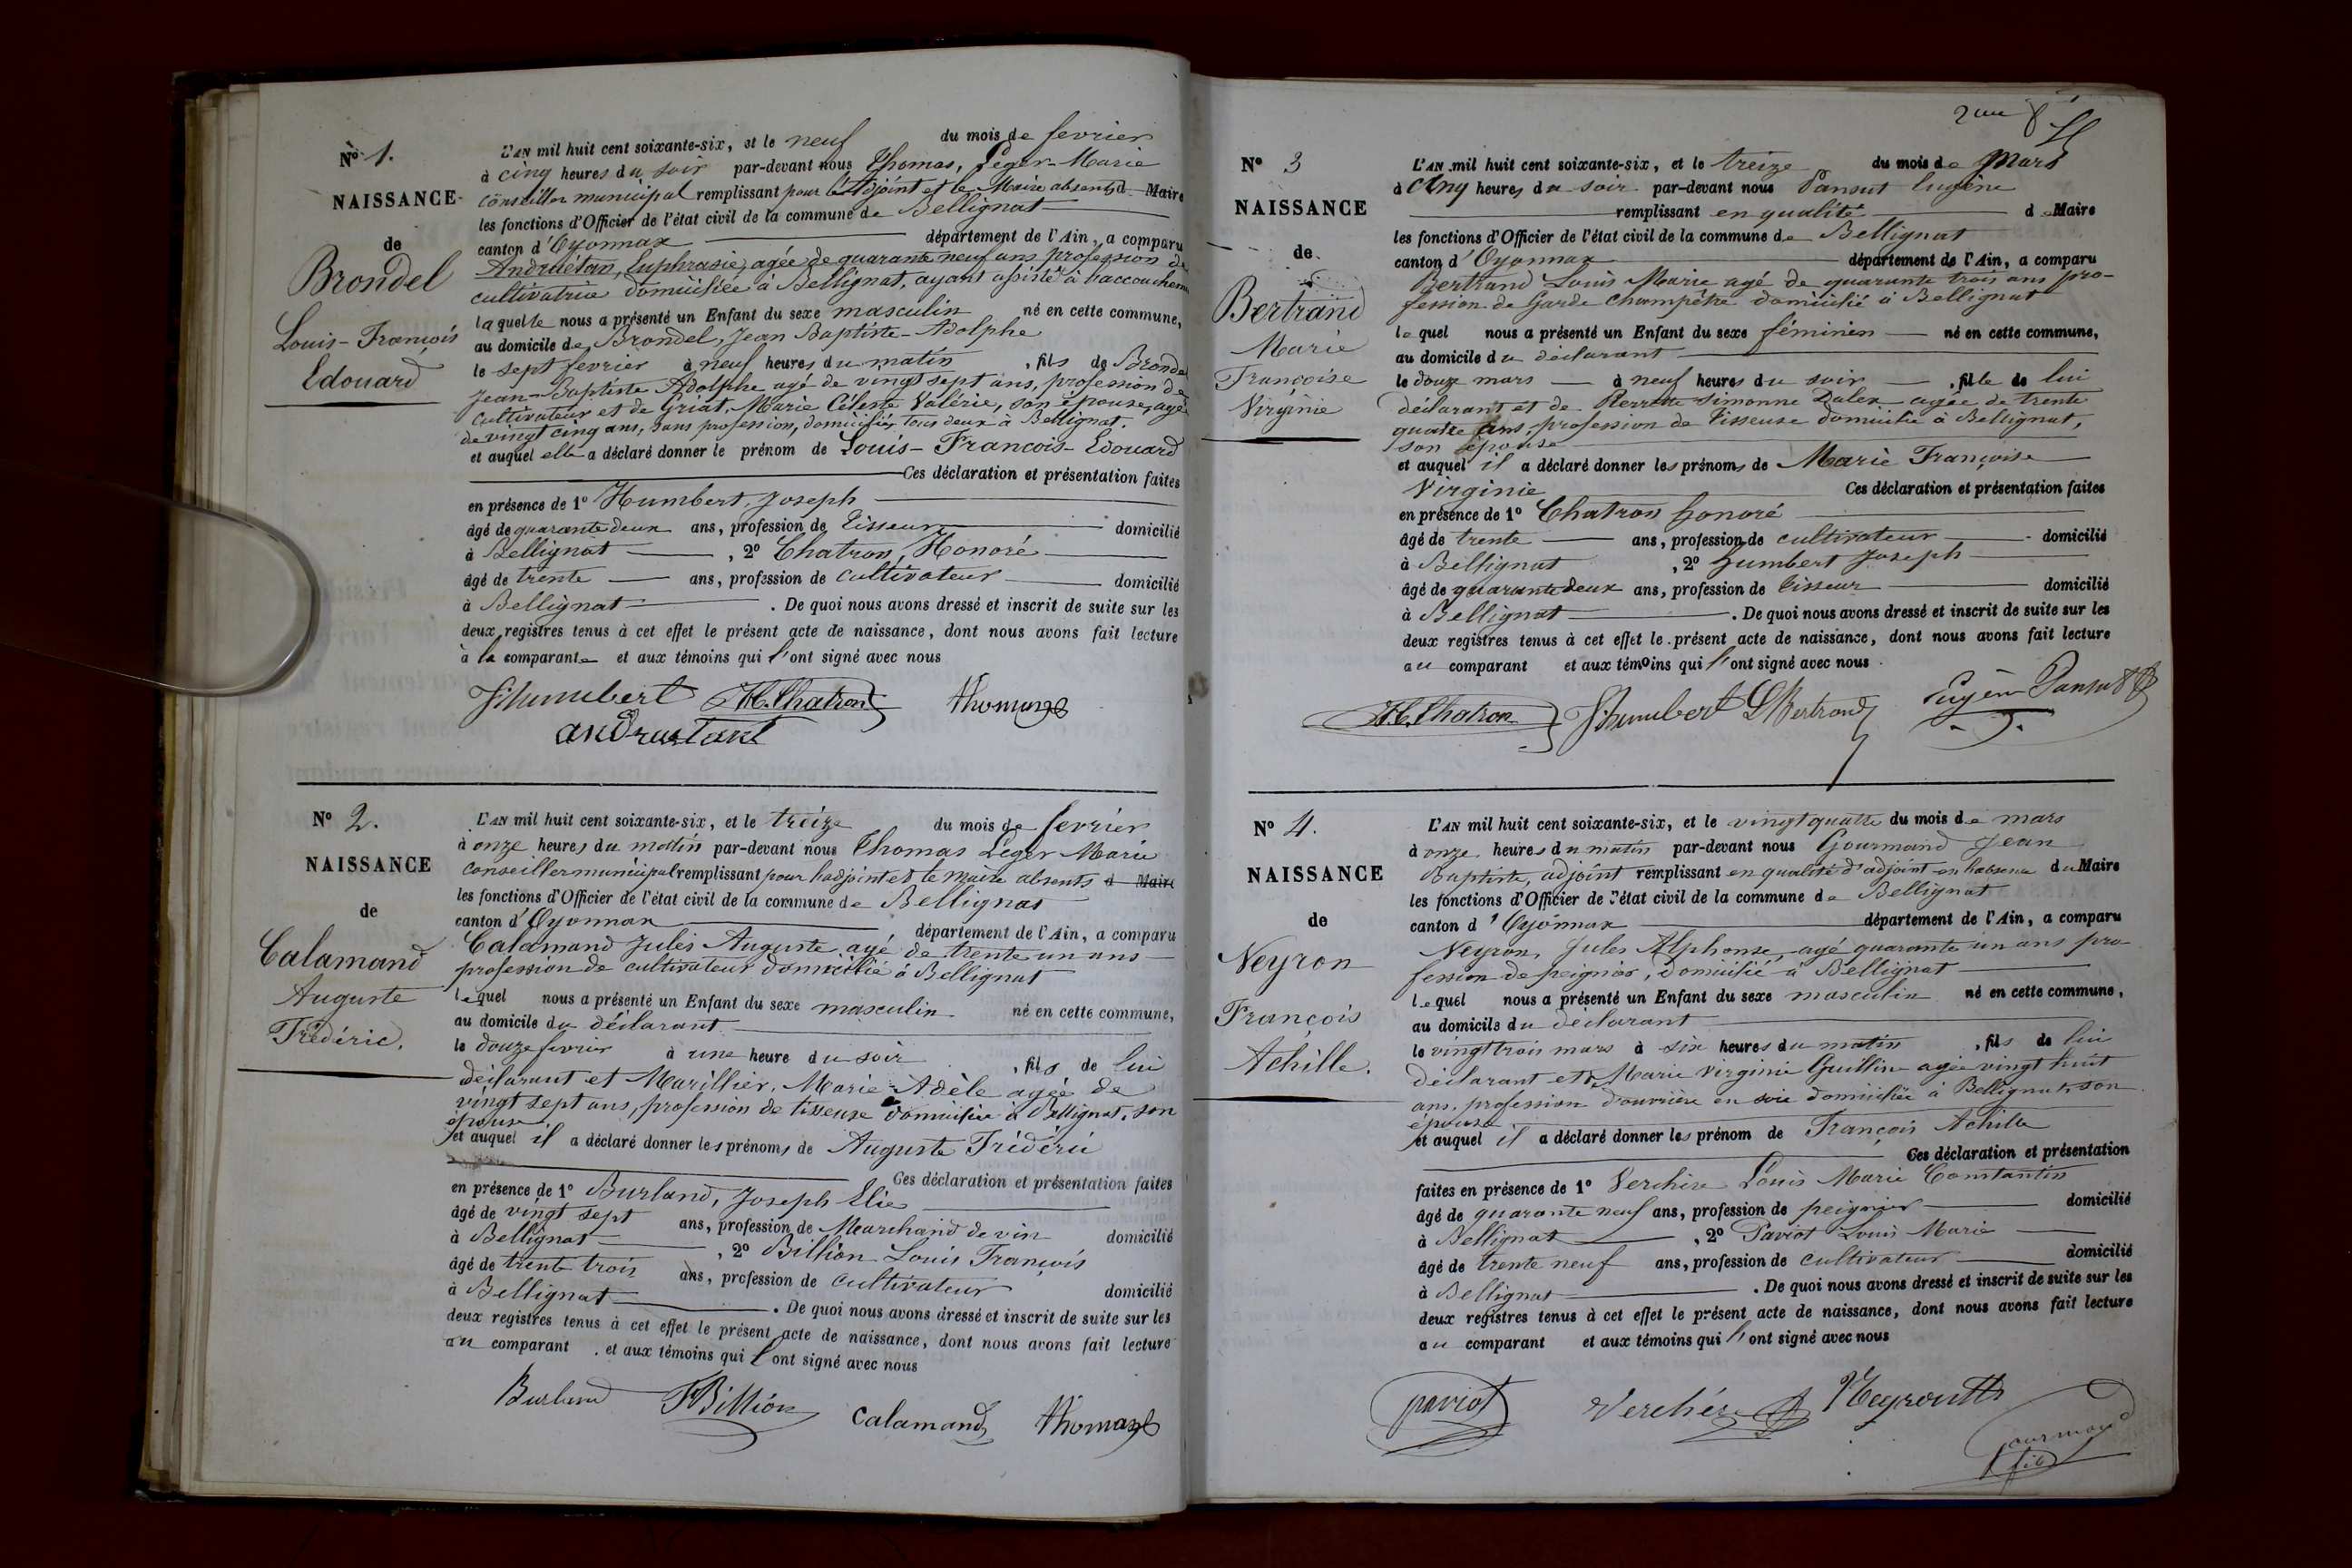 N° 1.
NAISSANCE
de
Brondel
Louis-François
Edouard
L'AN mil huit cent soixante-six, et le neuf du mois de fevrier
à cinq heures du soir par-devant nous Thomas, Leger-Marie
conseiller municipal remplissant pour l'adjoint et le Maire absents d Maire
les fonctions d'Officier de l'état civil de la commune de Bellignat
canton d'Oyonnax département de l'Ain, a comparu
Andruétan, Euphrasie, agée de quarante neuf ans profession de
cultivatrice domiciliée à Bellignat, ayant assisté à l'accouchem
laquelle nous a présenté un Enfant du sexe masculin né en cette commune,
au domicile de Brondel, Jean Baptiste-Adolphe
le sept fevrier à neuf heures du matin, fils de Brondel
Jean-Baptiste Adolphe agé de vingt sept ans, profession de
cultivateur et de Griat, Marie Céleste Valérie, son épouse, agée
de vingt cinq ans, sans profession, domiciliés tous deux à Bellignat.
et auquel elle a déclaré donner le prénom de Louis-François-Edouard
Ces déclaration et présentation faites
en présence de 1° Humbert, Joseph
âgé de quarante deux ans, profession de tisseur domicilié
à Bellignat, 2° Chatron, Honoré
âgé de trente ans, profession de cultivateur domicilié
à Bellignat. De quoi nous avons dressé et inscrit de suite sur les
deux registres tenus à cet effet le présent acte de naissance, dont nous avons fait lecture
à la comparante et aux témoins qui l'ont signé avec nous
J. humbert H. Chatron thomas
N° 2.
NAISSANCE
de
Calamand
Auguste
Frédéric.
L'AN mil huit cent soixante-six, et le treize du mois de fevrier
à onze heures du matin par-devant nous Thomas Leger Marie
conseiller municipal remplissant pour l'adjoint et le maire absents d Maire
les fonctions d'Officier de l'état civil de la commune de Bellignat
canton d'Oyonnax département de l'Ain, a comparu
Calamand Jules Auguste agé de trente un ans
profession de cultivateur domicilié à Bellignat
lequel nous a présenté un Enfant du sexe masculin né en cette commune,
au domicile du déclarant
le douze fevrier à une heure du soir, fils de lui
déclarant et Marillier, Marie Adèle agée de
vingt sept ans, profession de tisseuse domiciliée à Bellignat, son
épouse
et auquel il a déclaré donner les prénoms de Auguste Frédéric
Ces déclaration et présentation faites
en présence de 1° Burland, Joseph Elie
âgé de vingt sept ans, profession de Marchand de vin domicilié
à Bellignat, 2° Billion Louis François
âgé de trente trois ans, profession de cultivateur domicilié
à Bellignat. De quoi nous avons dressé et inscrit de suite sur les
deux registres tenus à cet effet le présent acte de naissance, dont nous avons fait lecture
au comparant et aux témoins qui l'ont signé avec nous
Burland F Billion calamand thomas
N° 3
NAISSANCE
de
Bertrand
Marie
Françoise
Virginie
L'AN mil huit cent soixante-six, et le treize du mois de Mars
à cinq heures du soir par-devant nous Pansut Eugène
remplissant en qualité de Maire
les fonctions d'Officier de l'état civil de la commune de Bellignat
canton d'Oyonnax département de l'Ain, a comparu
Bertrand Louis Marie agé de quarante trois ans pro-
fession de Garde champêtre domicilié à Bellignat
lequel nous a présenté un Enfant du sexe féminin né en cette commune,
au domicile du déclarant
le douze mars à neuf heures du soir, fille de lui
déclarant et de Pierrette Simonne Dalex agée de trente
quatre ans, profession de tisseuse domiciliée à Bellignat,
son épouse
et auquel il a déclaré donner les prénoms de Marie Françoise
Virginie Ces déclaration et présentation faites
en présence de 1° Chatron honoré
âgé de trente ans, profession de cultivateur domicilié
à Bellignat, 2° humbert Joseph
âgé de quarante deux ans, profession de tisseur domicilié
à Bellignat. De quoi nous avons dressé et inscrit de suite sur les
deux registres tenus à cet effet le présent acte de naissance, dont nous avons fait lecture
au comparant et aux témoins qui l'ont signé avec nous
H. Chatron J. humbert L Bertrand Eugène Pansut
N° 4.
NAISSANCE
de
Neyron
François
Achille.
L'AN mil huit cent soixante-six, et le vingt quatre du mois de mars
à onze heures du matin par-devant nous Gourmand Jean
Baptiste, adjoint remplissant en qualité d'adjoint en l'absence du Maire
les fonctions d'Officier de l'état civil de la commune de Bellignat
canton d'Oyonnax département de l'Ain, a comparu
Neyron, Jules Alphonse, agé quarante un ans pro-
fession de peignier, domicilié à Bellignat
lequel nous a présenté un Enfant du sexe masculin né en cette commune,
au domicile du déclarant
le vingt trois mars à six heures du matin, fils de lui
déclarant et de Marie Virginie Guillin agée vingt huit
ans, profession d'ouvrière en soie domiciliée à Bellignat, son
épouse
et auquel il a déclaré donner les prénom de François Achille
Ces déclaration et présentation
faites en présence de 1° Verchère Louis Marie Constantin
âgé de quarante neuf ans, profession de peignier domicilié
à Bellignat, 2° Paviot Louis Marie
âgé de trente neuf ans, profession de cultivateur domicilié
à Bellignat. De quoi nous avons dressé et inscrit de suite sur les
deux registres tenus à cet effet le présent acte de naissance, dont nous avons fait lecture
au comparant et aux témoins qui l'ont signé avec nous
paviot Verchère Neyron Gourmand